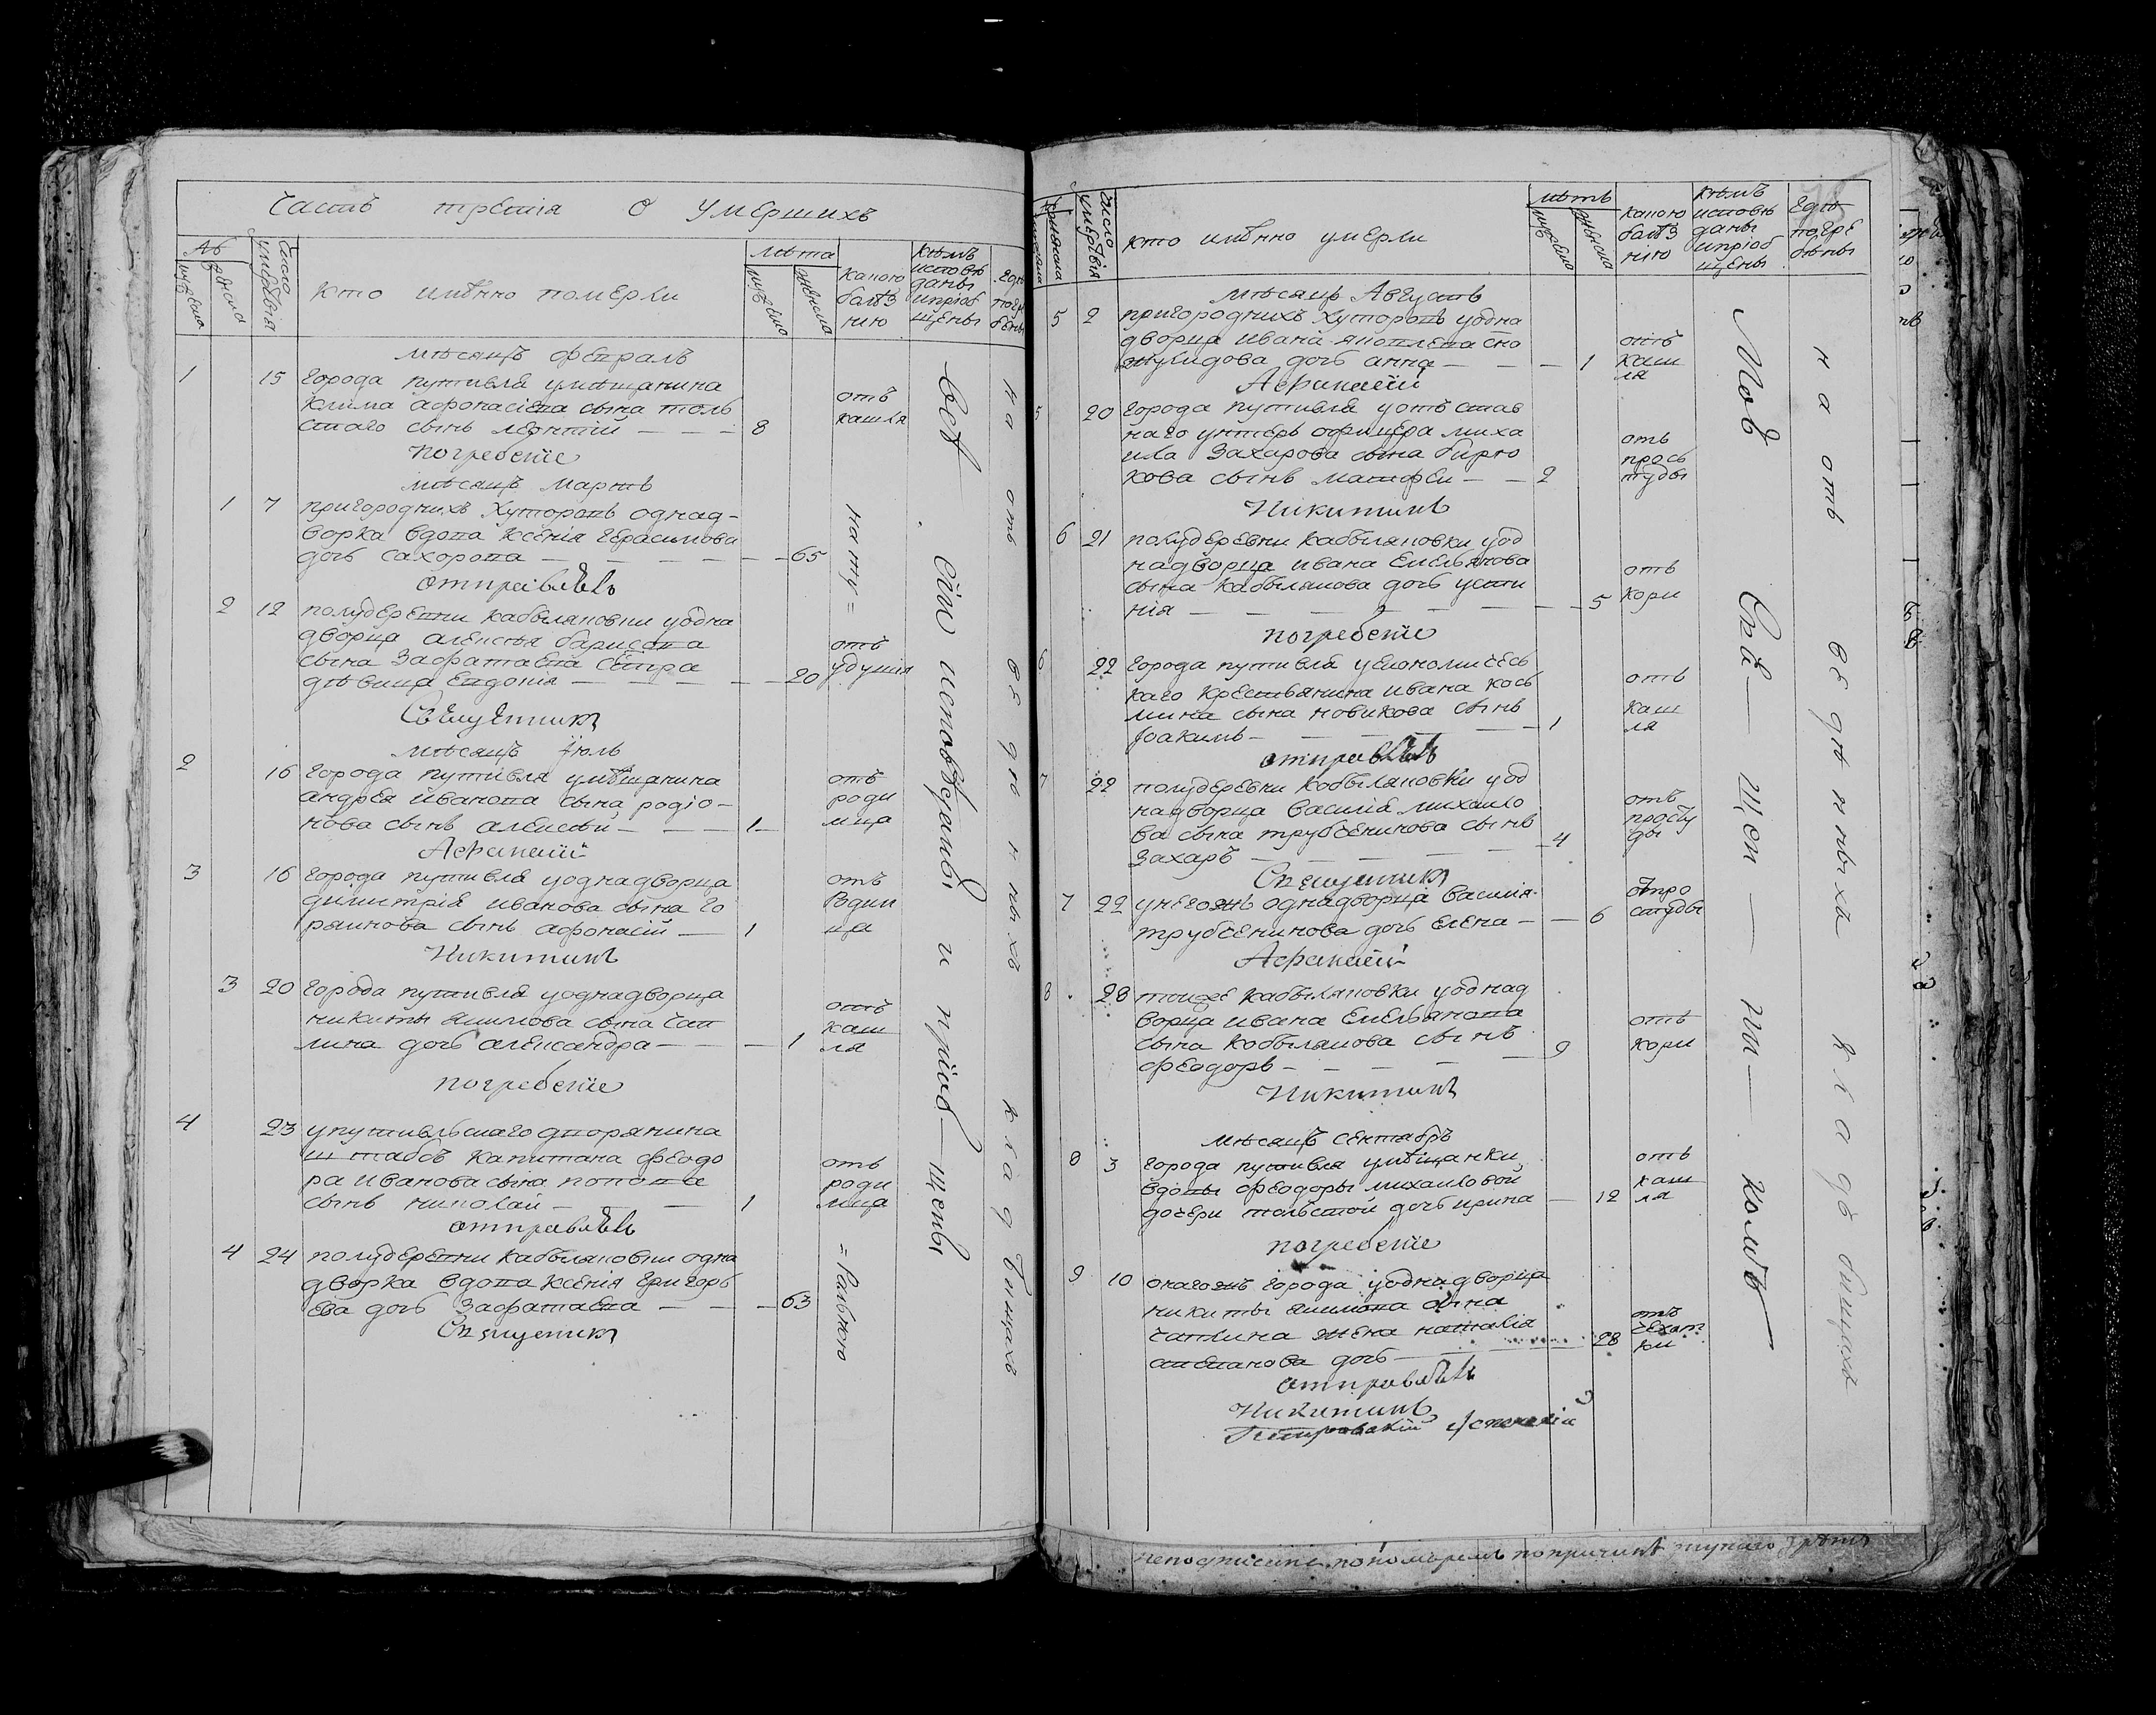 Часть третiя О умершихъ
№
мужеска
женска
Число умертвiя
кто имянно померли
лѣта
мужеска
женска
какою болѣзнiю
кѣмъ исповѣданы и прiобщены
гдѣ погребены
мѣсяцъ февраль
1 15 города путивля умѣщанина
клима афонасiева сына толь
стаго сынъ леонтiй — — — 8
отъ
кашля
Погребенiе
мѣсяцъ мартъ
1 7 пригородныхъ хуторовъ однад-
ворка вдова ксенiя герасимова
дочь сахорова — — — — 65
натту =
отправлялъ
2 12 полудеревни кабыляковки уодна
дворца алексѣя барисова
сына засфатаева сестра
дѣвица евдокiя — — — — 20
отъ
удушiя
Священникъ
мѣсяцъ Iюль
2 16 города путивля умѣщанина
андрея иванова сына родiо-
нова сынъ алексѣй — — — 1
отъ
роди
мца
Афанасiй
3 16 города путивля уоднадворца
димитрiя иванова сына го
ряинова сынъ афонасiй — 1
отъ
Родим
ца
Никитинъ
3 20 города путивля уоднадворца
никиты якимова сына чап
лина дочь александра — — 1
отъ
каш
ля
погребенiе
4 23 упутивльскаго дворянина
штабсъ капитана феодо
ра иванова сына попова
сынъ николай — — — 1
отъ
роди
мца
отправлялъ
4 24 полудеревни кабыляковки одна
дворка вдова ксенiя григорь
ева дочь засфатаева — — — 63
Священникъ
всѣ сiи исповѣданы и прiоб — щены
на отъ ве де н ныхъ кладбищахъ
мужеска
женска
Число умертвiя
кто имянно умерли
лѣтъ
мужеска
женска
какою болѣзнiю
кѣмъ исповѣданы и прiобщены
гдѣ погребены
мѣсяцъ Августъ
5 2 пригородныхъ хуторовъ уодна
дворца ивана яковлева ско
дочь анна — — — 1
отъ
каш
ля
Афанасiй
5 20 города путивля уотъстав
наго унтеръ офицера миха
ила захарова сына бирю
кова сынъ матфей — — 2
отъ
прось
туды
Никитинъ
6 21 полудеревни кабыляковки уод
надворца ивана емельянова
сына кабылякова дочь усти
нiя — — — — — — 5
отъ
кори
погребенiе
6 22 города путивля уекономичесь
каго крестьянина ивана кось
мина сына новикова сынъ
Iоакимъ — — — — 1
отъ
каш
ля
отправлялъ
7 22 полудеревни кобыляковки уод
надворца василiя михаило
ва сына трубченинова сынъ
захаръ — — — — — 4
отъ
просту
ды
Священникъ
7 22 унегожъ однадворца василiя
трубченинова дочь елена — — 6
отпро
студы
Афанасiй
8 28 тойже кабыляковки уоднад
ворца ивана емельянова
сына кобылякова сынъ
феодоръ — — — — — 9
отъ
кори
Никитинъ
мѣсяцъ сентябрь
8 3 города путивля умѣщанки
вдовы феодоры михаиловой
дочери толстой дочь ирина — 12
отъ
каш
ля
погребенiе
9 10 онагожъ города уоднадворца
никиты якимова сына
чаплина жена наталiя
дочь — — 28
отъ
чехот
ки
отправлялъ
Никитинъ
на отъ ве де н ныхъ кладбищахъ
неподписане пономаремъ попричинѣ